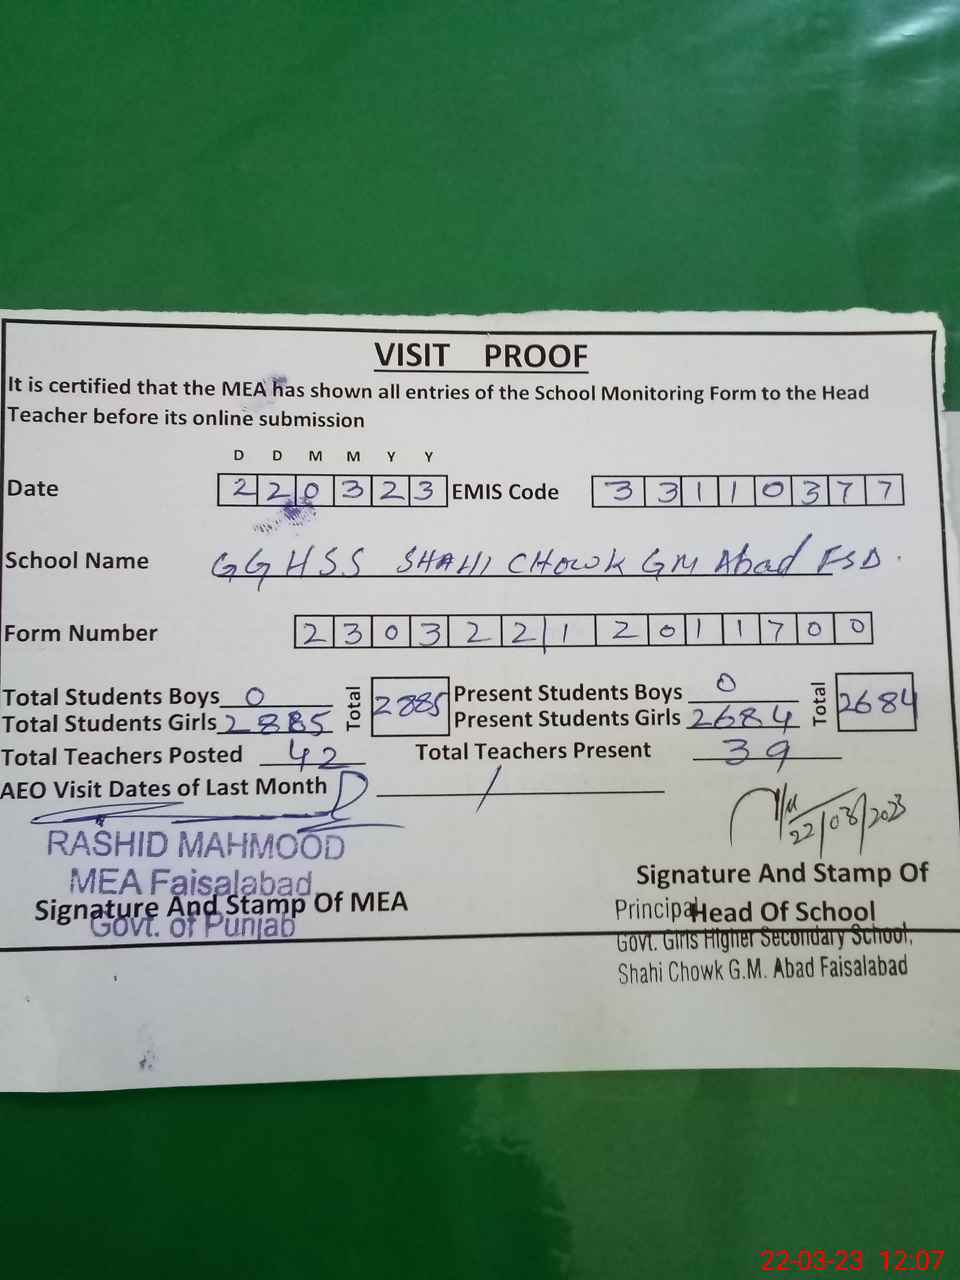 VISIT PROOF
It is certified that the MEA has shown all entries of the School Monitoring Form to the Head
Teacher before its online submission
D D M M Y Y
Date 2 2 0 3 2 3 EMIS Code 3 3 1 1 0 3 7 7
School Name GGHSS SHAHI CHOWK GM Abad FSD.
Form Number 2 3 0 3 2 2 1 2 0 1 1 7 0 0
Total Students Boys 0 Total 2885 Present Students Boys 0 Total 2684
Total Students Girls 2885 Present Students Girls 2684
Total Teachers Posted 42 Total Teachers Present 39
AEO Visit Dates of Last Month /
22/03/2023
RASHID MAHMOOD
MEA Faisalabad
Signature And Stamp Of MEA
Govt. of Punjab
Signature And Stamp Of
Principal Head Of School
Govt. Girls Higher Secondary School,
Shahi Chowk G.M. Abad Faisalabad
22-03-23 12:07